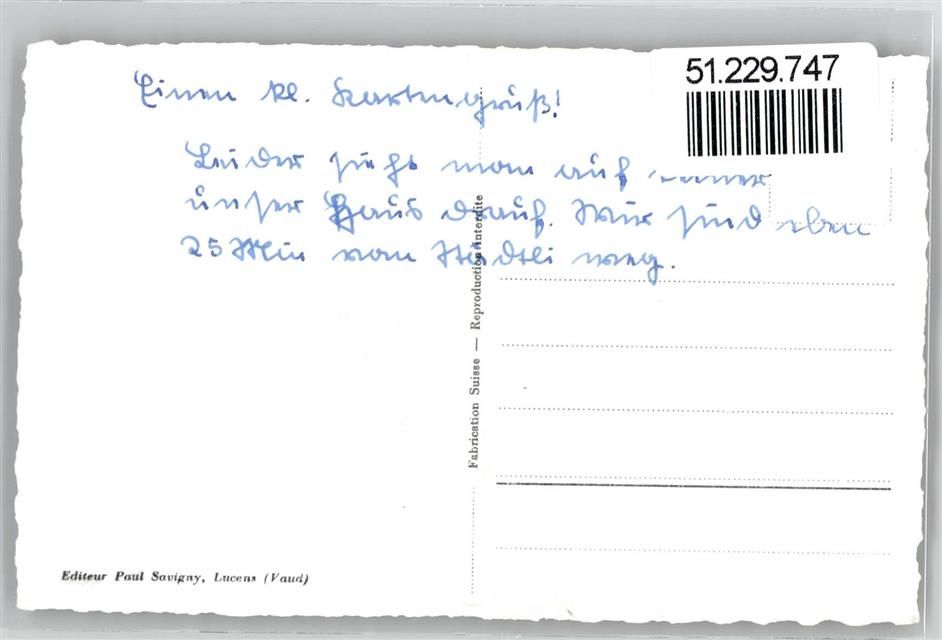 Einen kl. Kartengruß!
51.229.747
Leider sieht man auf keiner
unser Haus drauf. Wir sind eben
25 Min vom Städtli weg.
Fabrication Suisse — Reproduction interdite
Editeur Paul Savigny, Lucens (Vaud)